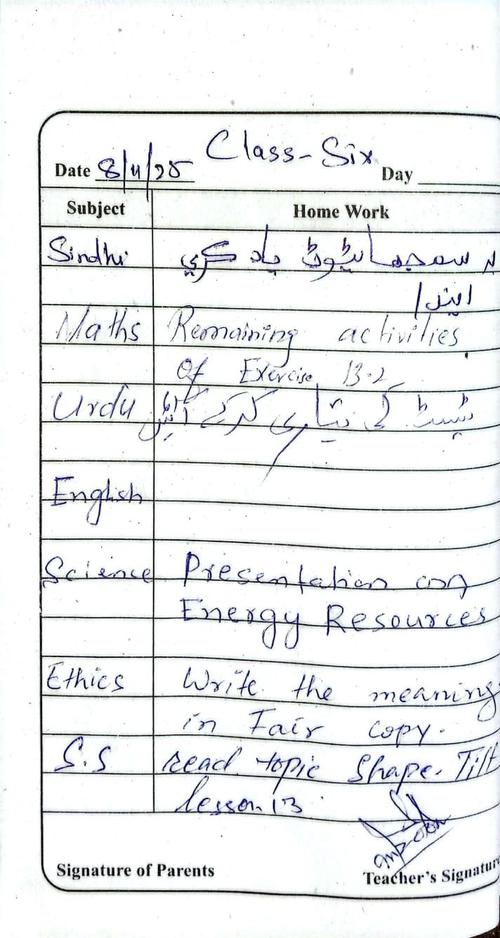 Class-Six
Date 8/11/25 Day
Subject Home Work
Sindhi سمجهاڻيون ياد ڪري
ايندا
Maths Remaining activities
Of Exercise 13.2
Urdu ٹیسٹ کی تیاری کرکے آئیں
English
Science Presentation on
Energy Resources
Ethics Write the meaning
in Fair copy.
S.S read topic Shape. Tilt
lesson 13
Signature of Parents Teacher's Signature